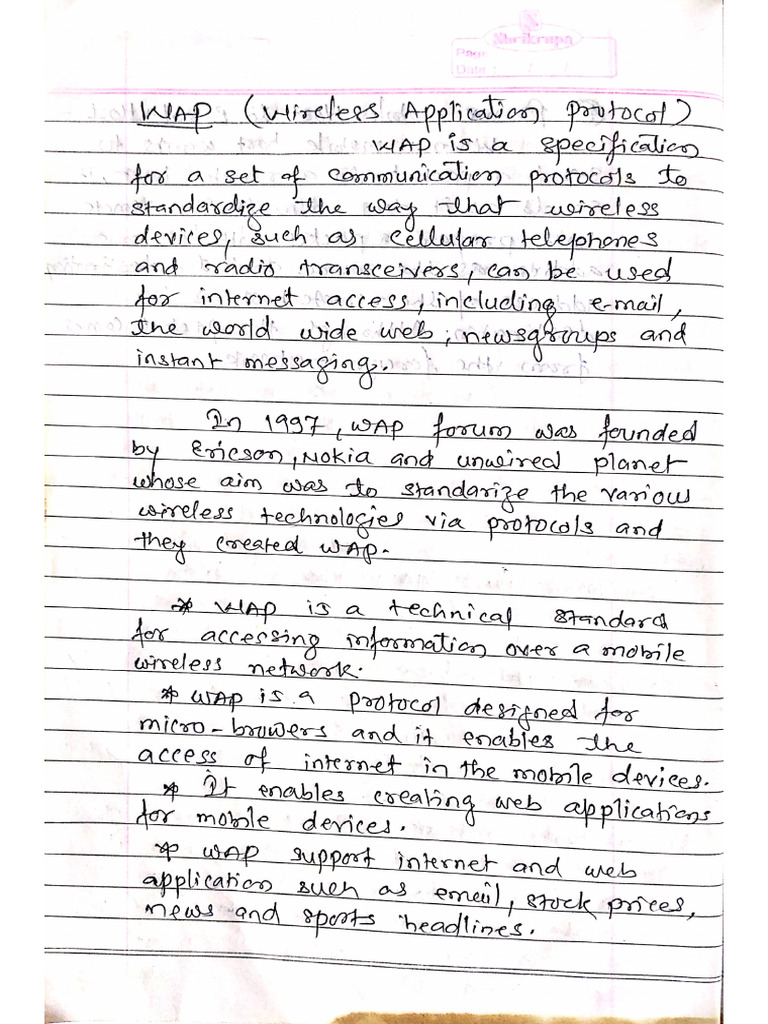 Shrikrupa
Page
Date : / /
WAP (Wireless Application Protocol)
WAP is a specification
for a set of communication protocols to
standardize the way that wireless
devices, such as cellular telephones
and radio transceivers, can be used
for internet access, including e-mail,
the world wide web, newsgroups and
instant messaging.
In 1997, WAP forum was founded
by Ericson, Nokia and unwired planet
whose aim was to standarize the various
wireless technologies via protocols and
they created WAP.
* WAP is a technical standard
for accessing information over a mobile
wireless network.
* WAP is a protocol designed for
micro-browers and it enables the
access of internet in the mobile devices.
* It enables creating web applications
for mobile devices.
* WAP support internet and web
application such as email, stock prices,
news and sports headlines.